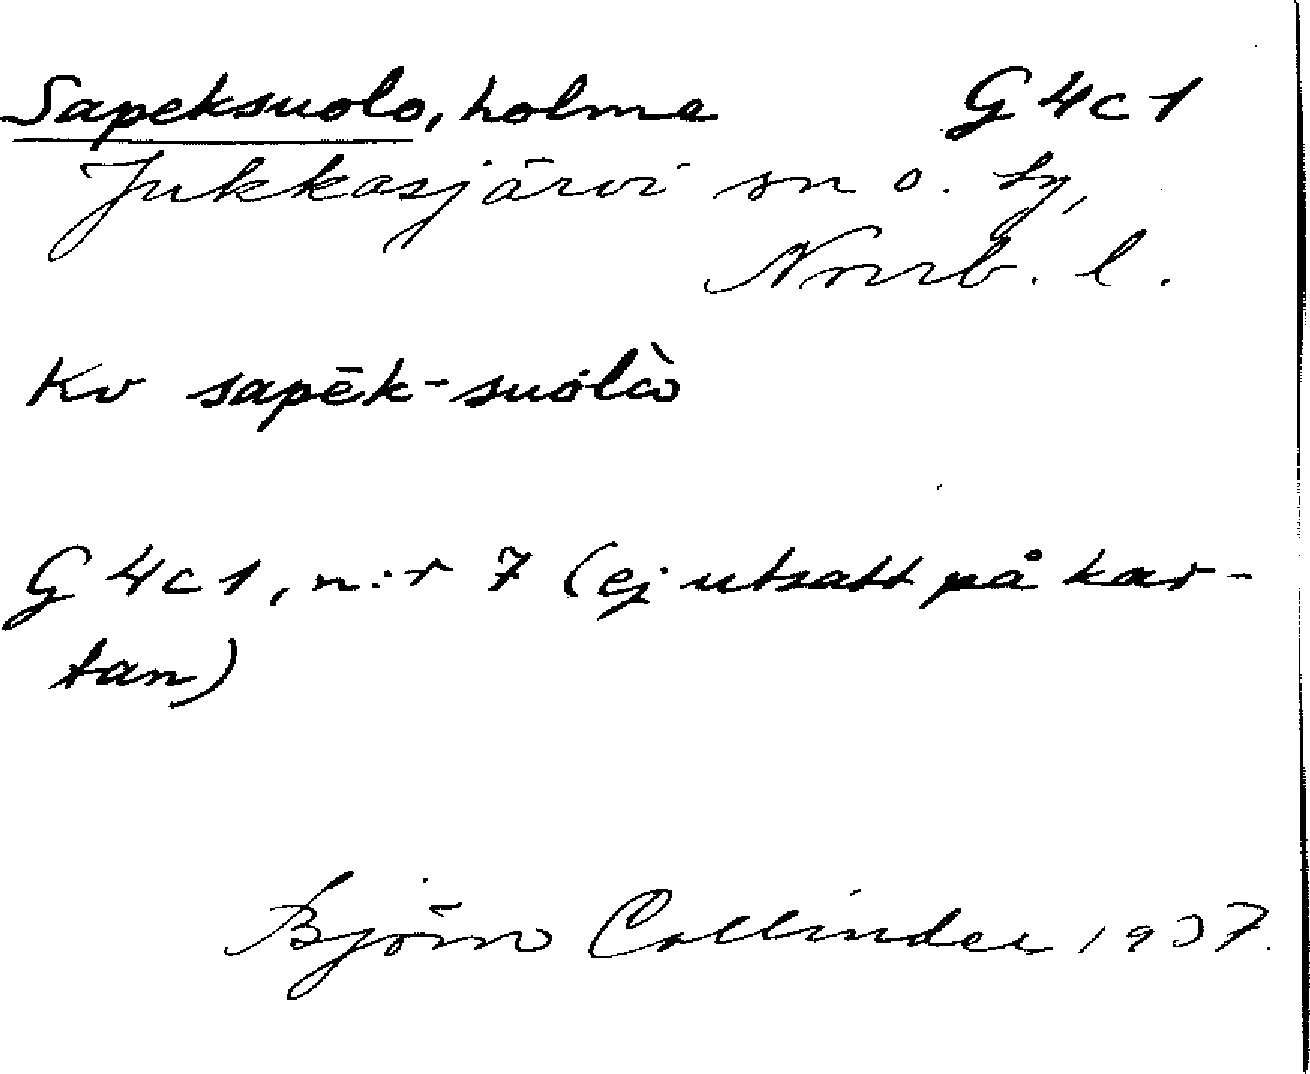 Sapeksuolo, holme G 4 c 1
Jukkasjärvi sn o. ty,
Norrb. l.
Kv sapēk-suolò
G 4 c 1, n:r 7 (ej utsatt på kar-
tan)
Björn Collinder 1937.